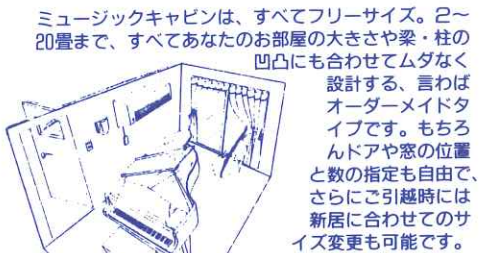 ミュージックキャビンは、すべてフリーサイズ。2〜
20畳まで、すべてあなたのお部屋の大きさや梁・柱の
凹凸にも合わせてムダなく
設計する、言わば
オーダーメイドタ
イプです。もちろ
んドアや窓の位置
と数の指定も自由で、
さらにご引越時には
新居に合わせてのサ
イズ変更も可能です。